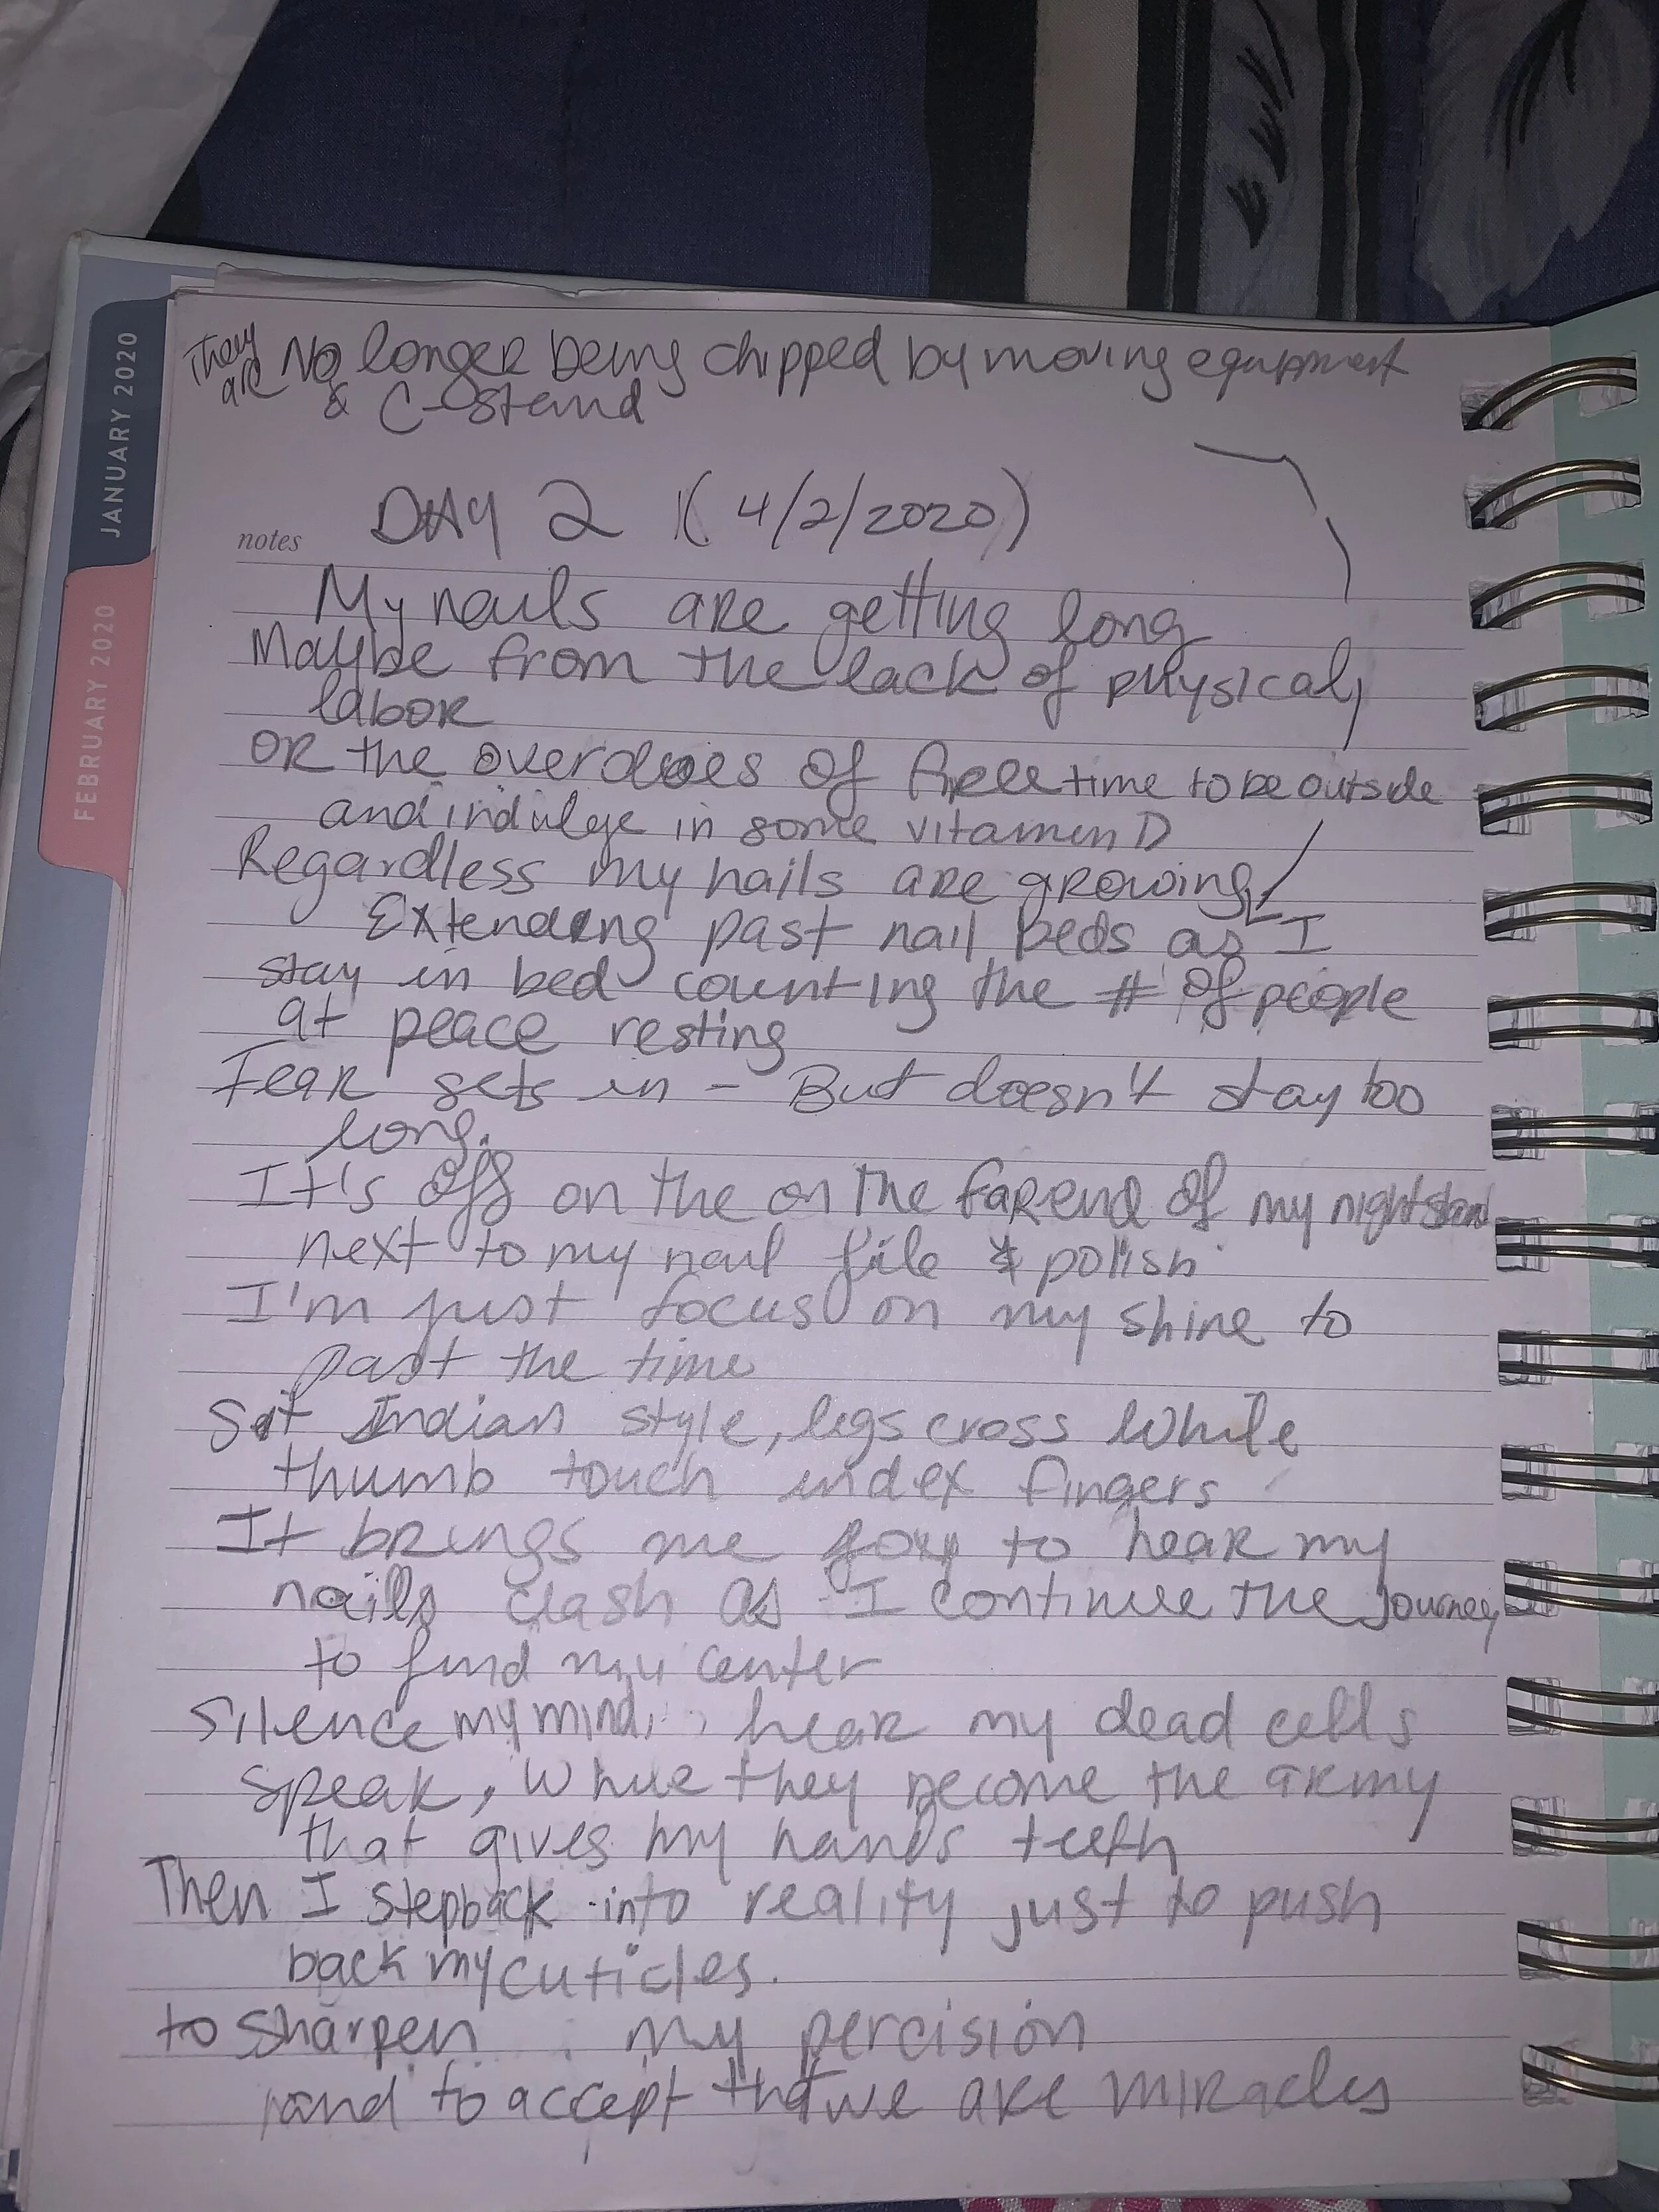 They are No longer being chipped by moving equipment
& C-Stand
DAY 2 (4/2/2020)
notes
My nails are getting long
Maybe from the lack of physical,
labor
OR the overdoes of free time to be outside
and indulge in some vitamin D
Regardless my nails are growing
Extending past nail beds as I
stay in bed counting the # of people
at peace resting
Fear sets in - But doesn't stay too
long.
It's off on the on the far end of my nightstand
next to my nail file & polish
I'm just focus on my shine to
past the time
Sit Indian style, legs cross while
thumb touch index fingers
It brings me joy to hear my
nails clash as I continue the journey
to find my center
Silence my mind, hear my dead cells
speak, while they become the army
that gives my hands teeth
Then I step back into reality just to push
back my cuticles.
to sharpen my percision
and to accept that we are miracles
JANUARY 2020
FEBRUARY 2020